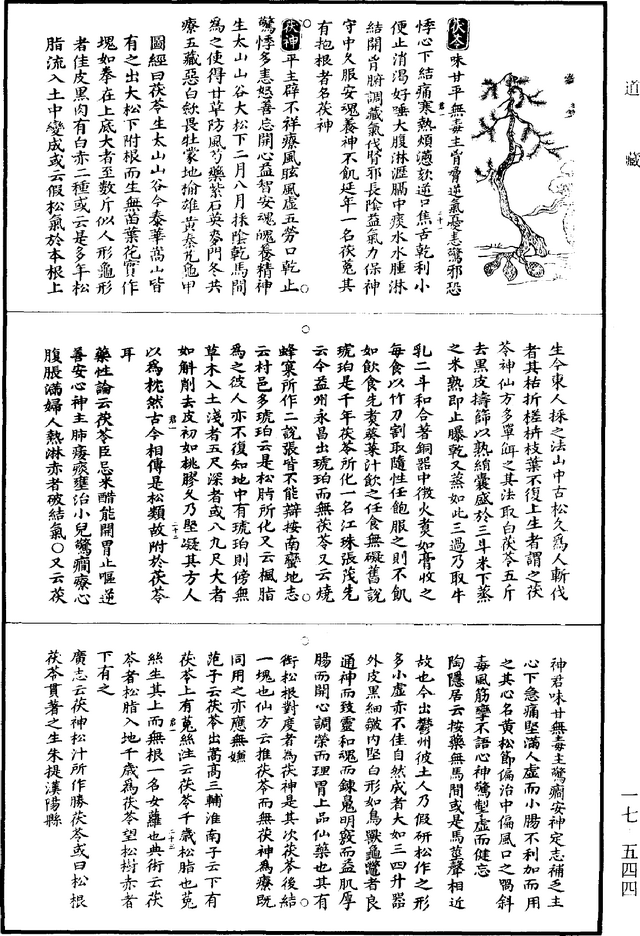 道藏
茯苓味甘平無毒主胷脅逆氣憂恚驚邪恐
悸心下結痛寒熱煩懣欬逆口焦舌乾利小
便止消渴好唾大腹淋瀝膈中痰水水腫淋
結開胷腑調藏氣伐腎邪長陰益氣力保神
守中久服安魂養神不飢延年一名茯菟其
有抱根者名茯神
茯神平主辟不祥療風眩風虛五勞口乾止
驚悸多恚怒善忘開心益智安魂魄養精神
生太山山谷大松下二月八月採陰乾馬間
為之使得甘草防風芍藥紫石英麥門冬共
療五藏惡白歛畏牡蒙地榆雄黃秦艽龜甲
圖經曰茯苓生太山山谷今泰華嵩山皆
有之出大松下附根而生無苗葉花實作
塊如拳在土底大者至數斤似人形龜形
者佳皮黑肉有白赤二種或云是多年松
脂流入土中變成或云假松氣於本根上
生今東人採之法山中古松久為人斬伐
者其枯折槎枿枝葉不復上生者謂之茯
苓神仙方多單餌之其法取白茯苓五斤
去黑皮擣篩以熟絹囊盛於三斗米下蒸
之米熟即止曝乾又蒸如此三過乃取牛
乳二斗和合著銅器中微火煑如膏收之
每食以竹刀割取隨性任飽服之則不飢
如飲食先煑葵菜汁飲之任食無礙舊說
琥珀是千年茯苓所化一名江珠張茂先
云今益州永昌出琥珀而無茯苓又云燒
蜂窠所作二說張皆不能辯按南蠻地志
云村邑多琥珀云是松脂所化又云楓脂
為之彼人亦不復知地中有琥珀則傍無
草木入土淺者五尺深者或八九尺大者
如斛削去皮初如桃膠久乃堅凝其方人
以為枕然古今相傳是松類故附於茯苓
耳
藥性論云茯苓臣忌米醋能開胃止嘔逆
善安心神主肺痿痰壅治小兒驚癇療心
腹脹滿婦人熱淋赤者破結氣○又云茯
神君味甘無毒主驚癇安神定志補乏主
心下急痛堅滿人虛而小腸不利加而用
之其心名黃松節偏治中偏風口之喎斜
毒風筋攣不語心神驚掣虛而健忘
陶隱居云按藥無馬間或是馬莖聲相近
故也今出鬱州彼土人乃假研松作之形
多小虛赤不佳自然成者大如三四升器
外皮黑細皺内堅白形如鳥獸龜鼈者良
通神而致靈和魂而鍊魄明竅而益肌厚
腸而開心調榮而理胃上品仙藥也其有
銜松根對度者為茯神是其次茯苓後結
一塊也仙方云推茯苓而無茯神為療既
同用之亦應無嫌
范子云茯苓出嵩高三輔淮南子云下有
茯苓上有菟絲注云茯苓千歲松脂也菟
絲生其上而無根一名女蘿也典術云茯
苓者松脂入地千歲為茯苓望松樹赤者
下有之
廣志云茯神松汁所作勝茯苓或曰松根
茯苓貫著之生朱提漢陽縣
一七·五四四